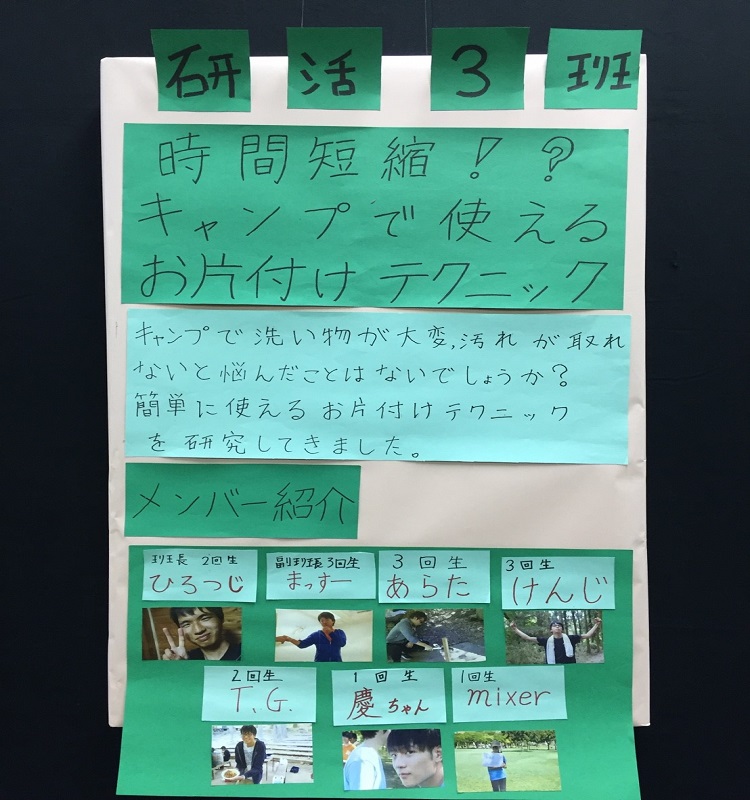 研活3班
時間短縮!?
キャンプで使える
お片付けテクニック
キャンプで洗い物が大変,汚れが取れ
ないと悩んだことはないでしょうか?
簡単に使えるお片付けテクニック
を研究してきました。
メンバー紹介
班長 2回生
ひろつじ
副班長3回生
まっすー
3回生
あらた
3回生
けんじ
2回生
T.G.
1回生
慶ちゃん
1回生
mixer